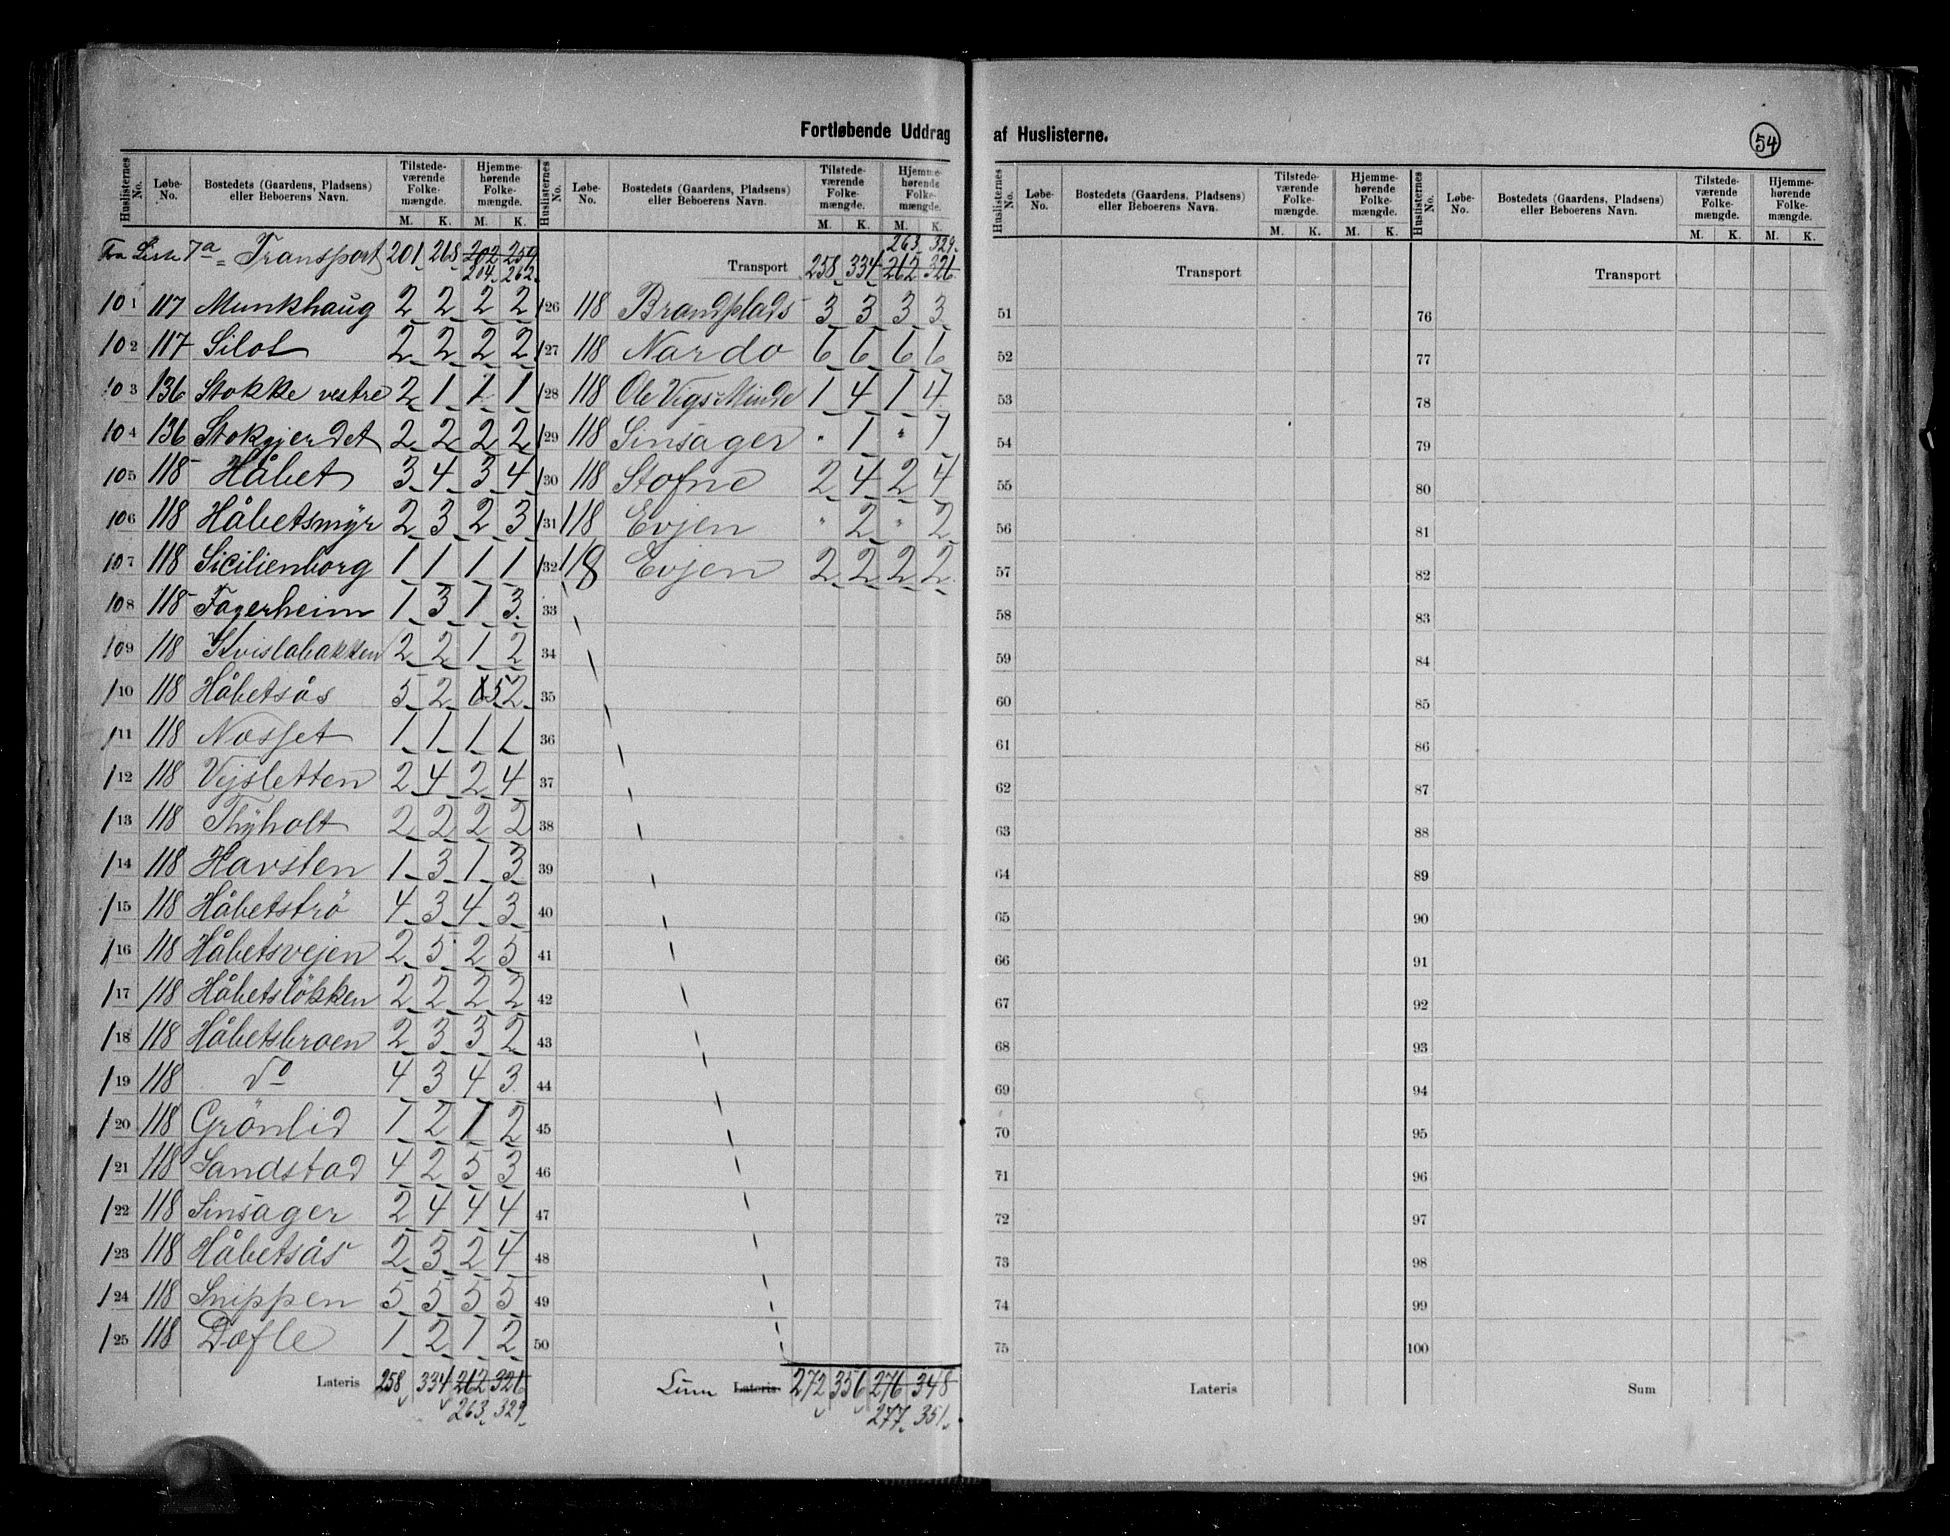 Fortløbende Uddrag af Huslisterne.
54
Huslisternes No. Løbe-No. Bostedets (Gaardens, Pladsens) eller Beboerens Navn. Tilstede-værende Folke-mængde. M. K. Hjemme-hørende Folke-mængde. M. K.
Fra Liste 7a = Transport 201 268 202 259
204 262
101 117 Munkhaug 2 2 2 2
102 117 Silot 2 2 2 2
103 136 Stokke vestre 2 1 1 1
104 136 Stokgjerdet 2 2 2 2
105 118 Håbet 3 4 3 4
106 118 Håbetsmyr 2 3 2 3
107 118 Sicilienborg 1 1 1 1
108 118 Fagerheim 1 3 1 3
109 118 Kvislabakken 2 2 1 2
110 118 Håbetsås 5 2 5 2
111 118 Næsset 1 1 1 1
112 118 Vejsletten 2 4 2 4
113 118 Thyholt 2 2 2 2
114 118 Havsten 1 3 1 3
115 118 Håbetstrø 4 3 4 3
116 118 Håbetsvejen 2 5 2 5
117 118 Håbetsløkken 2 2 2 2
118 118 Håbetsbroen 2 3 3 2
119 118 do 4 3 4 3
120 118 Grönlid 1 2 1 2
121 118 Sandstad 4 2 5 3
122 118 Sinsager 2 4 4 4
123 118 Håbetsås 2 3 2 4
124 118 Snippen 5 5 5 5
125 118 Dæfle 1 2 1 2
Lateris 258 334 262 326
263 329
Huslisternes No. Løbe-No. Bostedets (Gaardens, Pladsens) eller Beboerens Navn. Tilstede-værende Folke-mængde. M. K. Hjemme-hørende Folke-mængde. M. K.
263 329
Transport 258 334 262 326
126 118 Brandplads 3 3 3 3
127 118 Nardo 6 6 6 6
128 118 Ole Vigs Minde 1 4 1 4
129 118 Sinsager " 1 " 1
130 118 Stofne 2 4 2 4
131 118 Evjen " 2 " 2
132 118 Evjen 2 2 2 2
33
34
35
36
37
38
39
40
41
42
43
44
45
46
47
48
49
50
Sum Lateris 272 356 276 348
277 351
Huslisternes No. Løbe-No. Bostedets (Gaardens, Pladsens) eller Beboerens Navn. Tilstede-værende Folke-mængde. M. K. Hjemme-hørende Folke-mængde. M. K.
Transport
51
52
53
54
55
56
57
58
59
60
61
62
63
64
65
66
67
68
69
70
71
72
73
74
75
Lateris
Huslisternes No. Løbe-No. Bostedets (Gaardens, Pladsens) eller Beboerens Navn. Tilstede-værende Folke-mængde. M. K. Hjemme-hørende Folke-mængde. M. K.
Transport
76
77
78
79
80
81
82
83
84
85
86
87
88
89
90
91
92
93
94
95
96
97
98
99
100
Sum